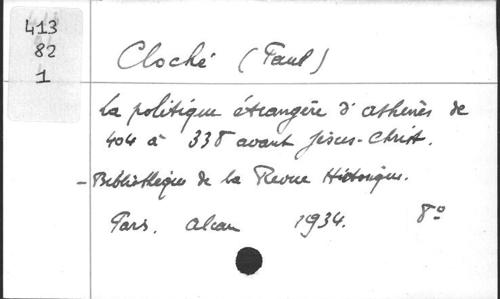 413
82
1
Cloché (Paul)
La politique étrangère d'athènes de
404 à 338 avant Jésus-Christ.
- Bibliothèque de la Revue Historique.
Paris. Alcan 1934. 8°